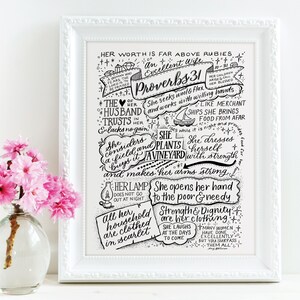 HER WORTH IS FAR ABOVE RUBIES
An Excellent Wife
Proverbs 31
She seeks wool & flax
and works with willing hands
THE
HUSBAND
TRUSTS
& lacks no gain
LIKE MERCHANT
SHIPS SHE BRINGS
FOOD FROM AFAR
She
considers
a field and
buys it
SHE
PLANTS
A VINEYARD
She dresses
herself
with strength
and makes her arms strong
HER LAMP
DOES NOT GO
OUT AT NIGHT
She opens her hand
to the poor & needy
All her
household
are clothed
in scarlet
Strength & Dignity
are her clothing
SHE LAUGHS
AT THE DAYS
TO COME
MANY WOMEN
HAVE DONE
EXCELLENTLY
BUT YOU SURPASS
THEM ALL